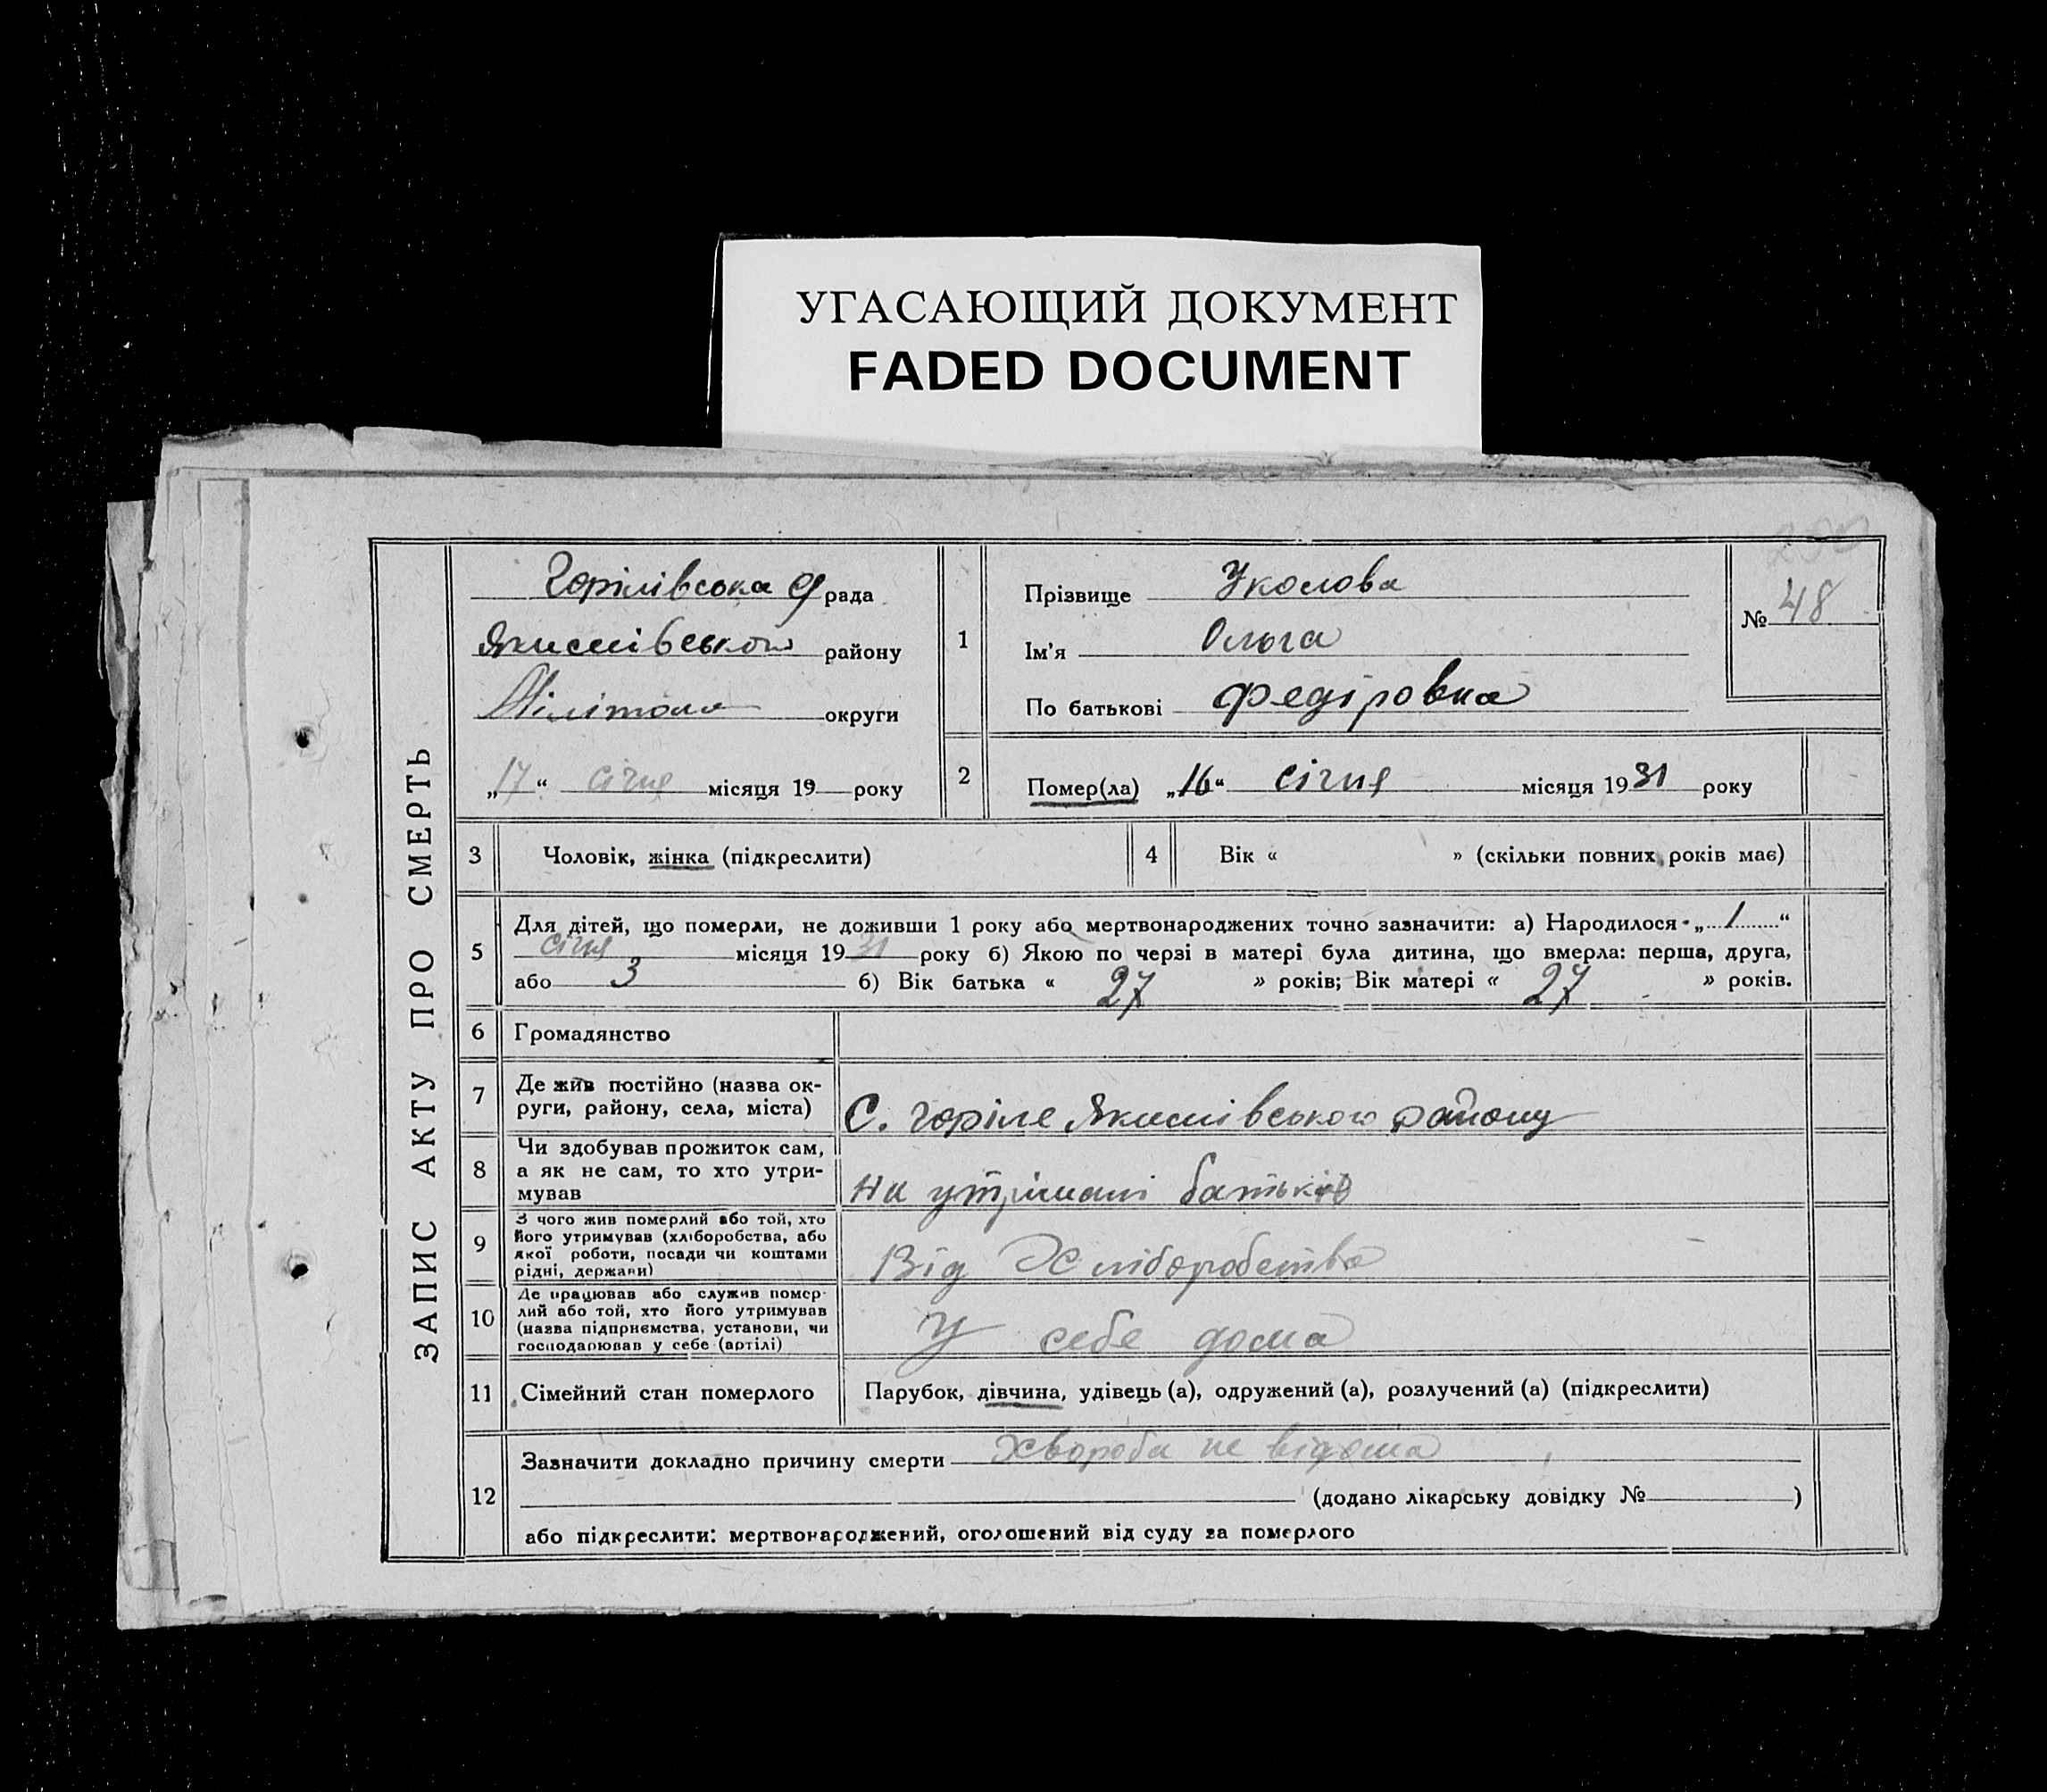 УГАСАЮЩИЙ ДОКУМЕНТ
FADED DOCUMENT
ЗАПИС АКТУ ПРО СМЕРТЬ
Горілівська рада
Якимівського району
Мілітопо округи
„17“ січня місяця 19 року
1
Прізвище Уколова
Ім'я Ольга
По батькові Федіровна
№ 48
2
Помер(ла) „16“ січня місяця 1931 року
3 Чоловік, жінка (підкреслити)
4 Вік « » (скільки повних років має)
5
Для дітей, що померли, не доживши 1 року або мертвонароджених точно зазначити: а) Народилося „1“
січня місяця 1931 року б) Якою по черзі в матері була дитина, що вмерла: перша, друга,
або 3 б) Вік батька « 27 » років; Вік матері « 27 » років.
6 Громадянство
7
Де жив постійно (назва ок-
руги, району, села, міста)
С. Горіле Якимівського району
8
Чи здобував прожиток сам,
а як не сам, то хто утри-
мував
на утрімані батьків
9
З чого жив померлий або той, хто
його утримував (хліборобства, або
якої роботи, посади чи коштами
рідні, держави)
Від Хліборобства
10
Де працював або служив помер-
лий або той, хто його утримував
(назва підприємства, установи, чи
господарював у себе (артілі)
У себе дома
11 Сімейний стан померлого
Парубок, дівчина, удівець (а), одружений (а), розлучений (а) (підкреслити)
12
Зазначити докладно причину смерти Хвороба не відома
(додано лікарську довідку № )
або підкреслити: мертвонароджений, оголошений від суду за померлого